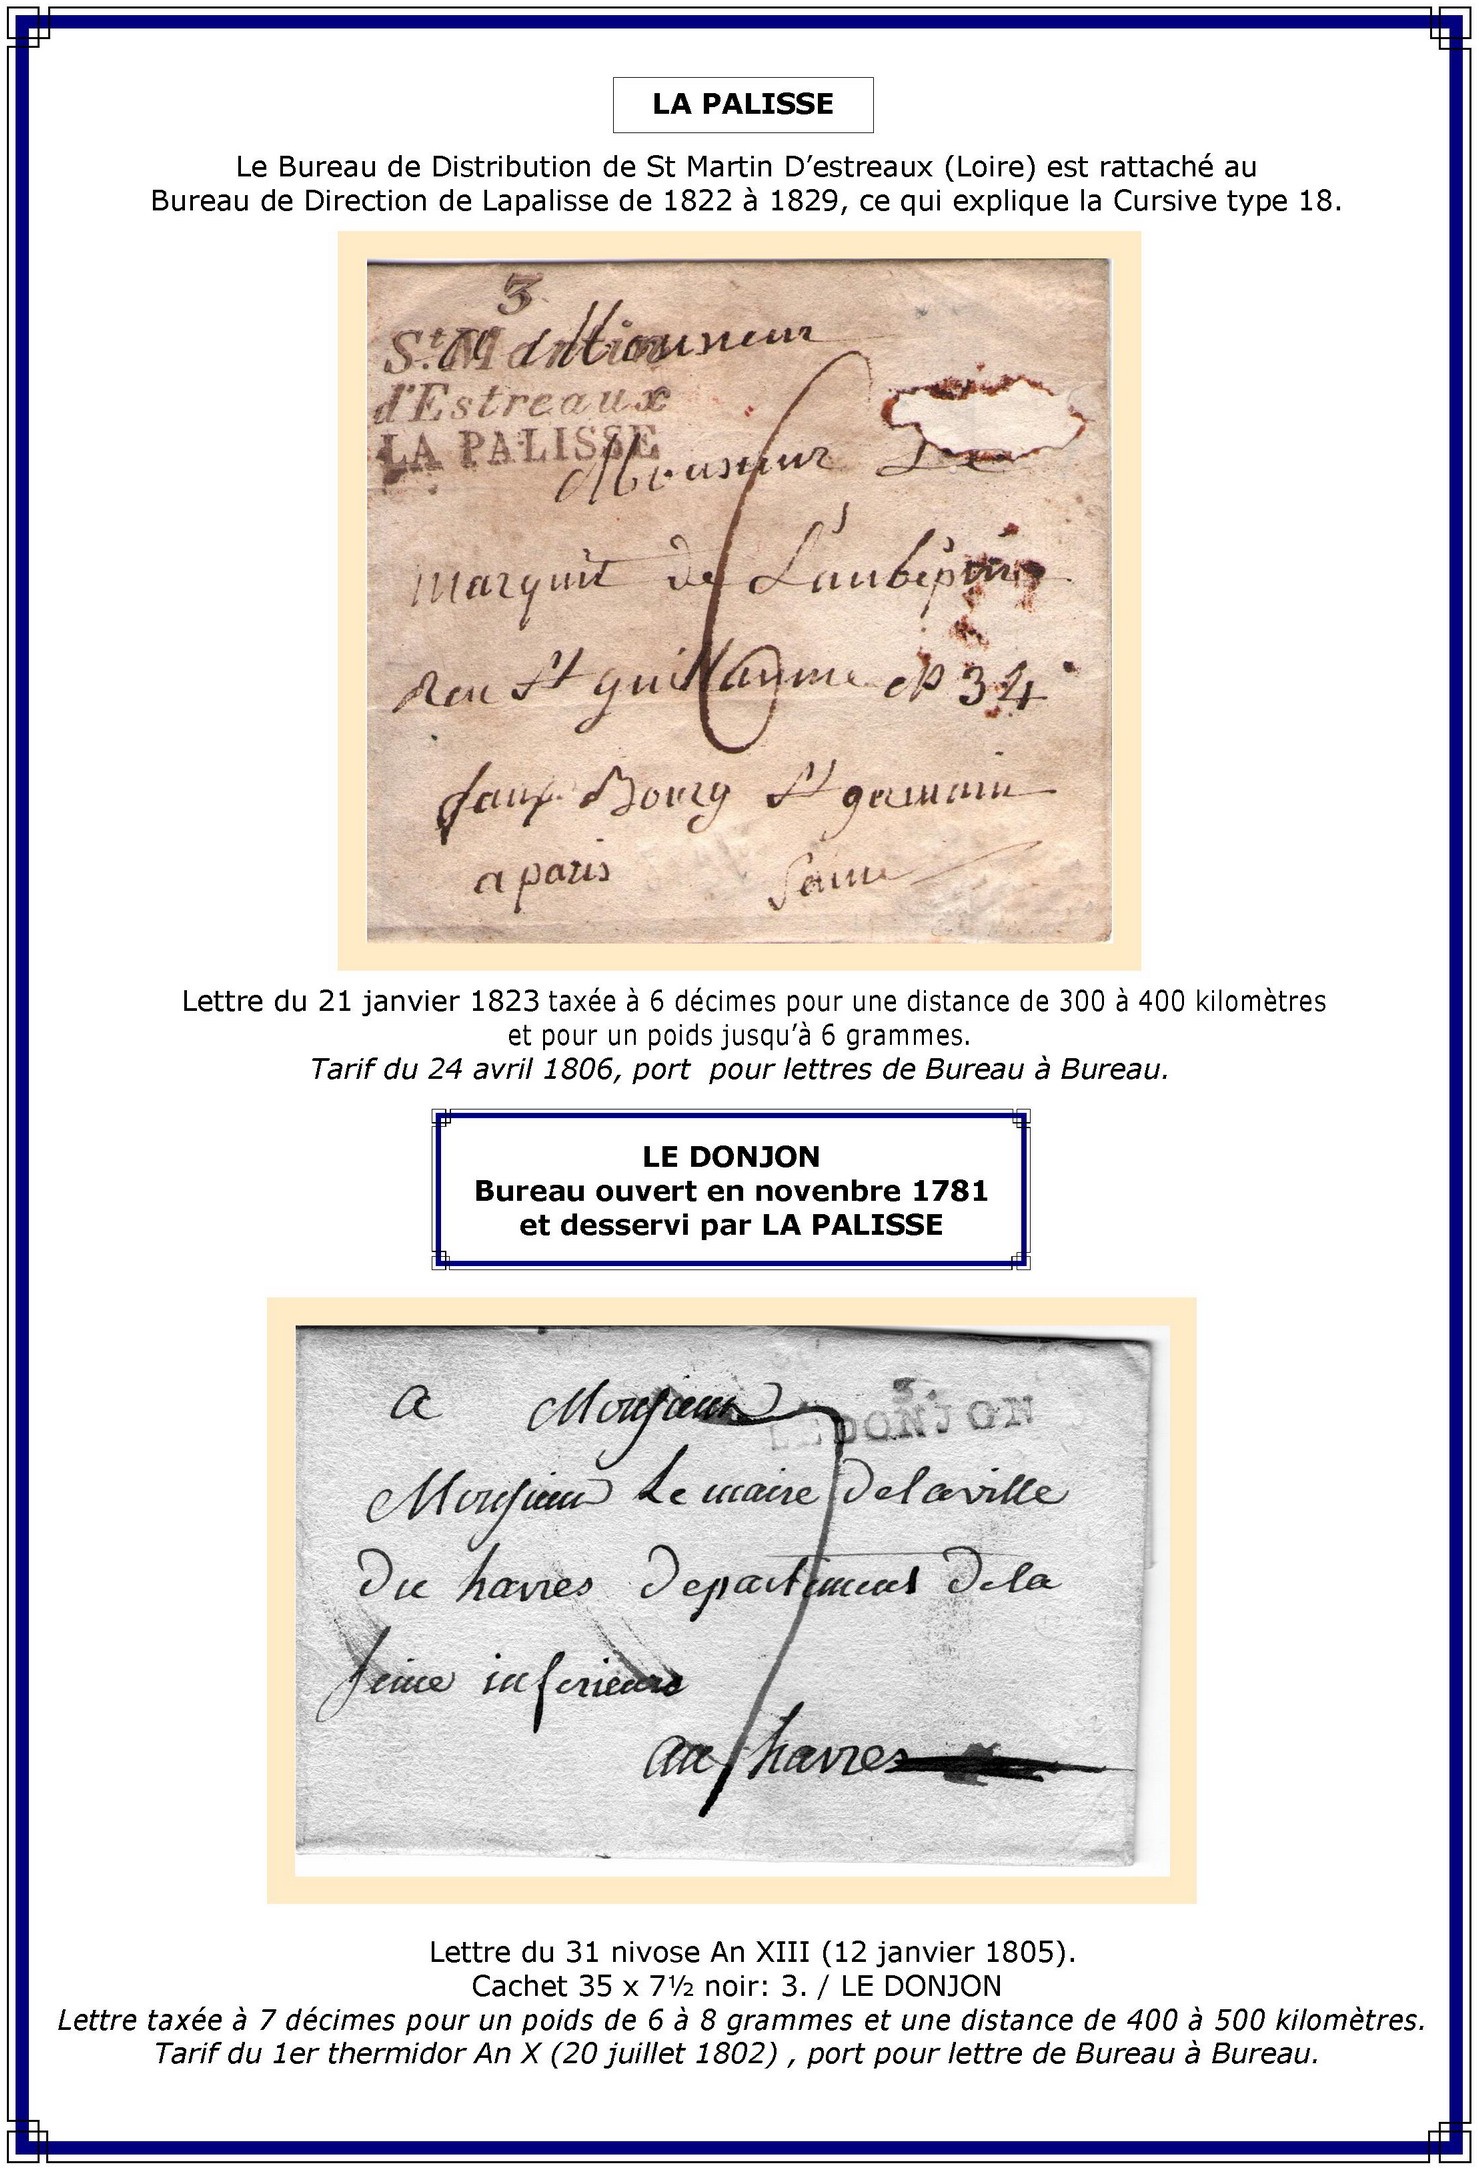 LA PALISSE
Le Bureau de Distribution de St Martin D’estreaux (Loire) est rattaché au
Bureau de Direction de Lapalisse de 1822 à 1829, ce qui explique la Cursive type 18.
3
St. Martin
a Monsieur
d'Estreaux
LA PALISSE
Monsieur Le
6
marquit de L'aubépin
Rue St guillaume N 34
faux Bourg St germain
a paris Seine
Lettre du 21 janvier 1823 taxée à 6 décimes pour une distance de 300 à 400 kilomètres
et pour un poids jusqu’à 6 grammes.
Tarif du 24 avril 1806, port pour lettres de Bureau à Bureau.
LE DONJON
Bureau ouvert en novenbre 1781
et desservi par LA PALISSE
3.
a Monsieur LE DONJON
7
Monsieur Le maire de la ville
Du havres departement de la
seine inferieure
au havres
Lettre du 31 nivose An XIII (12 janvier 1805).
Cachet 35 x 7½ noir: 3. / LE DONJON
Lettre taxée à 7 décimes pour un poids de 6 à 8 grammes et une distance de 400 à 500 kilomètres.
Tarif du 1er thermidor An X (20 juillet 1802) , port pour lettre de Bureau à Bureau.